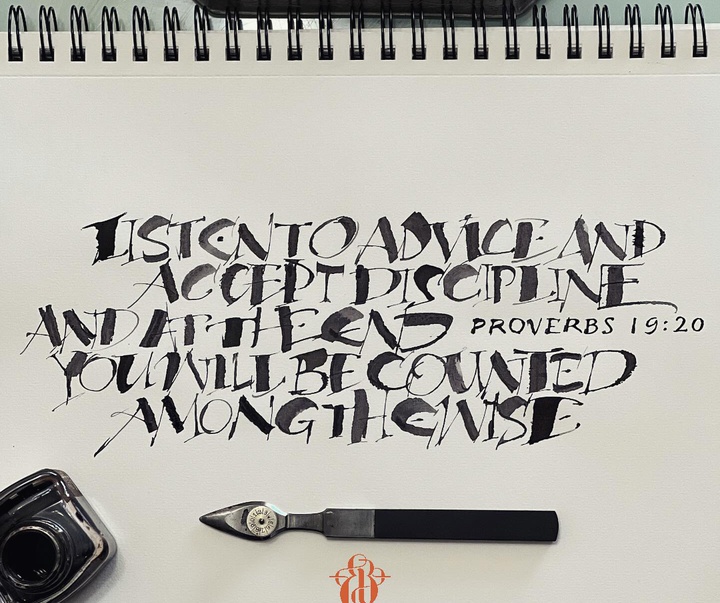 LISTEN TO ADVICE AND
ACCEPT DISCIPLINE
AND AT THE END
PROVERBS 19:20
YOU WILL BE COUNTED
AMONG THE WISE